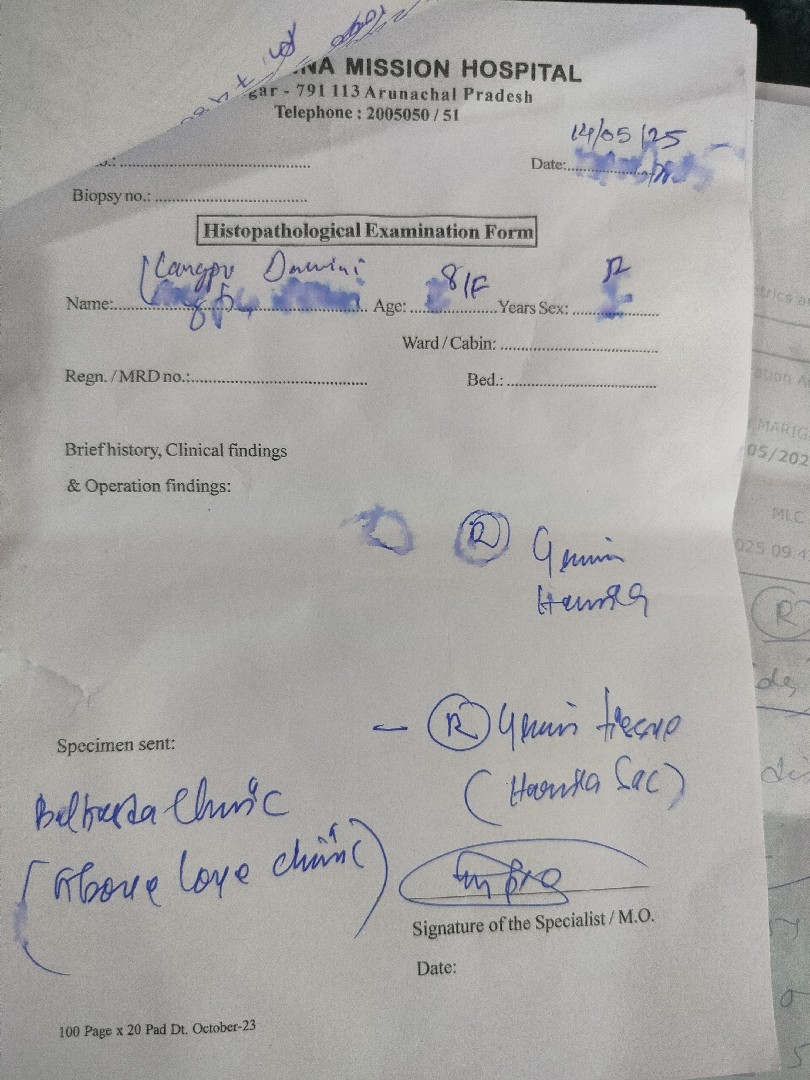 NA MISSION HOSPITAL
gar - 791 113 Arunachal Pradesh
Telephone : 2005050 / 51
14/05/25
Date:
Biopsy no.:
Histopathological Examination Form
8/F
Name: Age: Years Sex:
Ward / Cabin:
Regn. / MRD no.: Bed.:
Brief history, Clinical findings
& Operation findings:
R
Hernia
R tissue
Specimen sent:
(Hernia Sac)
Clinic
(Above Love clinic)
Signature of the Specialist / M.O.
Date:
100 Page x 20 Pad Dt. October-23
MARIG
05/202
MLC
025 09:4
R